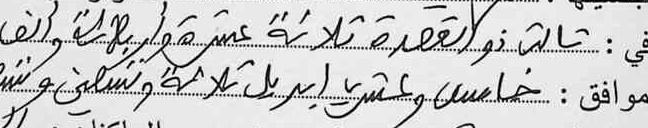 في : ثالث ذو القعدة ثلاثة عشرة وأربعمائة وألف
موافق : خامس وعشرين ابريل ثلاثة وتسعين وتسع